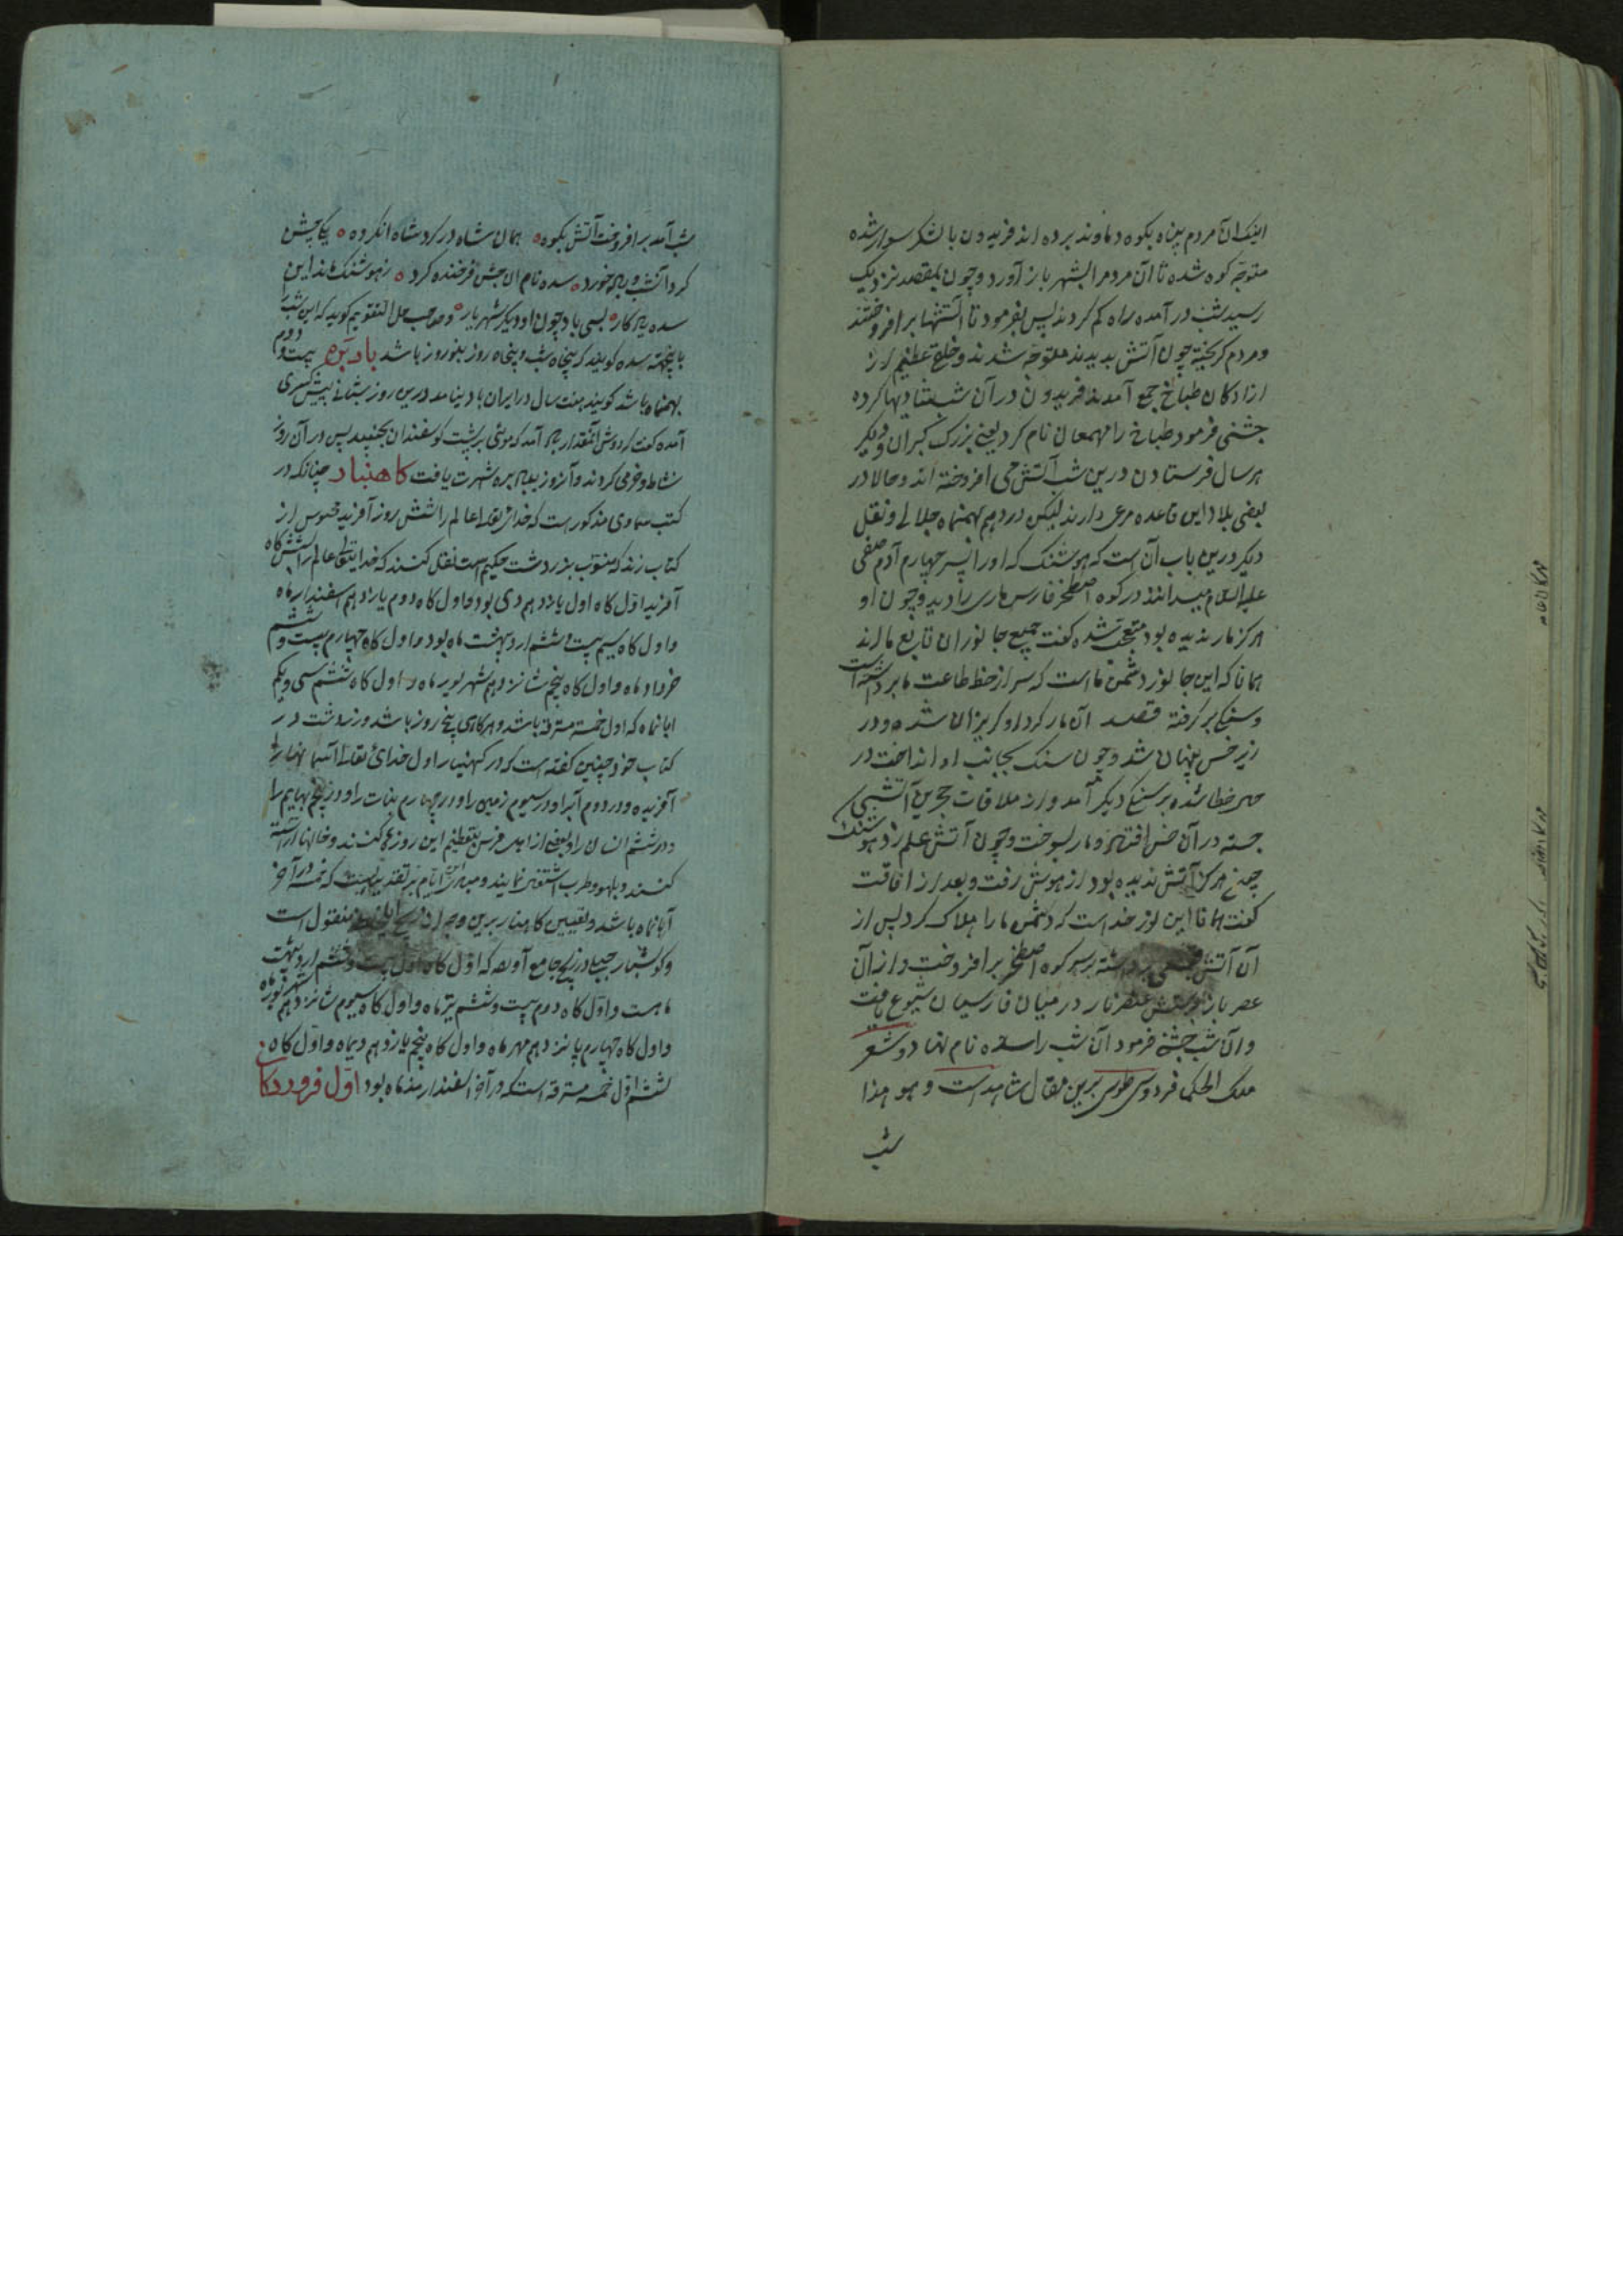 اینک آن مردم پناه بکوه دماوند برده اند فریدون با لشکر سوار شده
متوجه کوه شده تا آن مردم را بشهر باز آورد و چون بمقصد نزدیک
رسید شب در آمده راه کم کردند پس بفرمود تا آتشها برافروختند
و مردم کریخته چون آتش بدیدند متوجه شدند و خلق عظیم از
ازادکان طباخ جمع آمدند فریدون در آن شب شادیها کرده
جشنی فرمود طباخ را مهمغان نام کرد یعنی بزرک کبران و دیکر
هر سال فرستادن درین شب آتش می افروخته اند و حالا در
بعضی بلاد این قاعده مرعی دارند لیکن در دهم بهمنماه جلالی و نقل
دیکر درین باب آن است که هوشنک که او را پسر چهارم آدم صفی
علیه السلام میدانند در کوه اصطخر فارس ماری را دید و چون او
هرکز مار ندیده بود متعجب شده کفت جمیع جانوران تابع ما اند
همانا که این جانور دشمن ما است که سر از خط طاعت ما برداشته است
و سنکی بر کرفته قصد آن مار کرد او کریزان شده و در
زیر خس پنهان شد و چون سنک بجانب او انداخت در
خطا شده بر سنکی دیکر آمد و از ملاقات حجرین آتشی
جسته در آن خس افتاد و مار بسوخت و چون آتش علم زد هوشنک
چون هرکز آتش ندیده بود از هوش رفت و بعد از افاقت
کفت همانا این نور خداست که دشمن ما را هلاک کرد پس از
آن آتش برداشته بر سر کوه اصطخر برافروخت و از آن
عصر باز پرستش عنصر نار در میان فارسیان شیوع یافت
و آن شب جشن فرمود آن شب را سده نام نهاد و شعر
ملک الحکما فردوسی طوسی برین مقال شاهد است و هو هذا
شب
شب آمد برافروخت آتش بکوه همان شاه در کرد شاه انکروه یکی جشن
کرد آنشب و باده خورد سده نام آن جشن فرخنده کرد ز هوشنک ماند این
سده یادکار بسی باد چون او دیکر شهریار و صاحب حل التقویم کوید که این شب
باینجهته سده کویند که پنجاه شب و پنجاه روز بنوروز باشد بادبره بیست و دوم
بهمنماه باشد کویند هفت سال در ایران باد نیامد درین روز شبانی پیش کسری
آمده کفت دوش آنمقدار باد آمد که موی بر پشت کوسفندان بجنبید پس در آن روز
نشاط و خرمی کردند و آنروز بباد بره شهرت یافت کاهنبار چنانکه در
کتب سماوی مذکور است که خدای تعالی عالم را شش روز آفرید مجوس از
کتاب زند که منسوب بزردشت حکیم است نقل کنند که خدایتعالی عالم را بشش کاه
آفرید اول کاه اول یازدهم دی بود و اول کاه دوم یازدهم اسفندارماه
و اول کاه سیم بیست و ششم اردیبهشت ماه بود و اول کاه چهارم بیست و ششم
خرداد ماه و اول کاه پنجم شانزدهم شهریور ماه و اول کاه ششم سی و یکم
ابانماه که اول خمسه مسترقه باشد و هر کاهی پنج روز باشد و زردشت در
کتاب خود چنین کفته است که در کهنبار اول خدای تعالی آسمانها را
آفریده و در دوم آبرا و در سیوم زمین را و در چهارم نبات را و در پنجم بهایم را
و در ششم انسان را و بعضی از اهل فرس تعظیم این روز می کنند و خانها آراسته
کنند و بلهو و طرب اشتغال نمایند و مبدا این ایام بر تقدیر است که خمسه در آخر
آبانماه باشد و تعیین کاهنبار برین وجه منقول است
و کوشیار جیلی در زیج جامع آورده که اول کاه اول بیست و ششم اردیبهشت
ماهست و اول کاه دوم بیست و ششم تیر ماه و اول کاه سیوم شانزدهم شهریور ماه
و اول کاه چهارم پانزدهم مهر ماه و اول کاه پنجم یازدهم دیماه و اول کاه
ششم اول خمسه مسترقه است که در آخر اسفندارمذ ماه بود اول فروردکان
مهرکان عامه